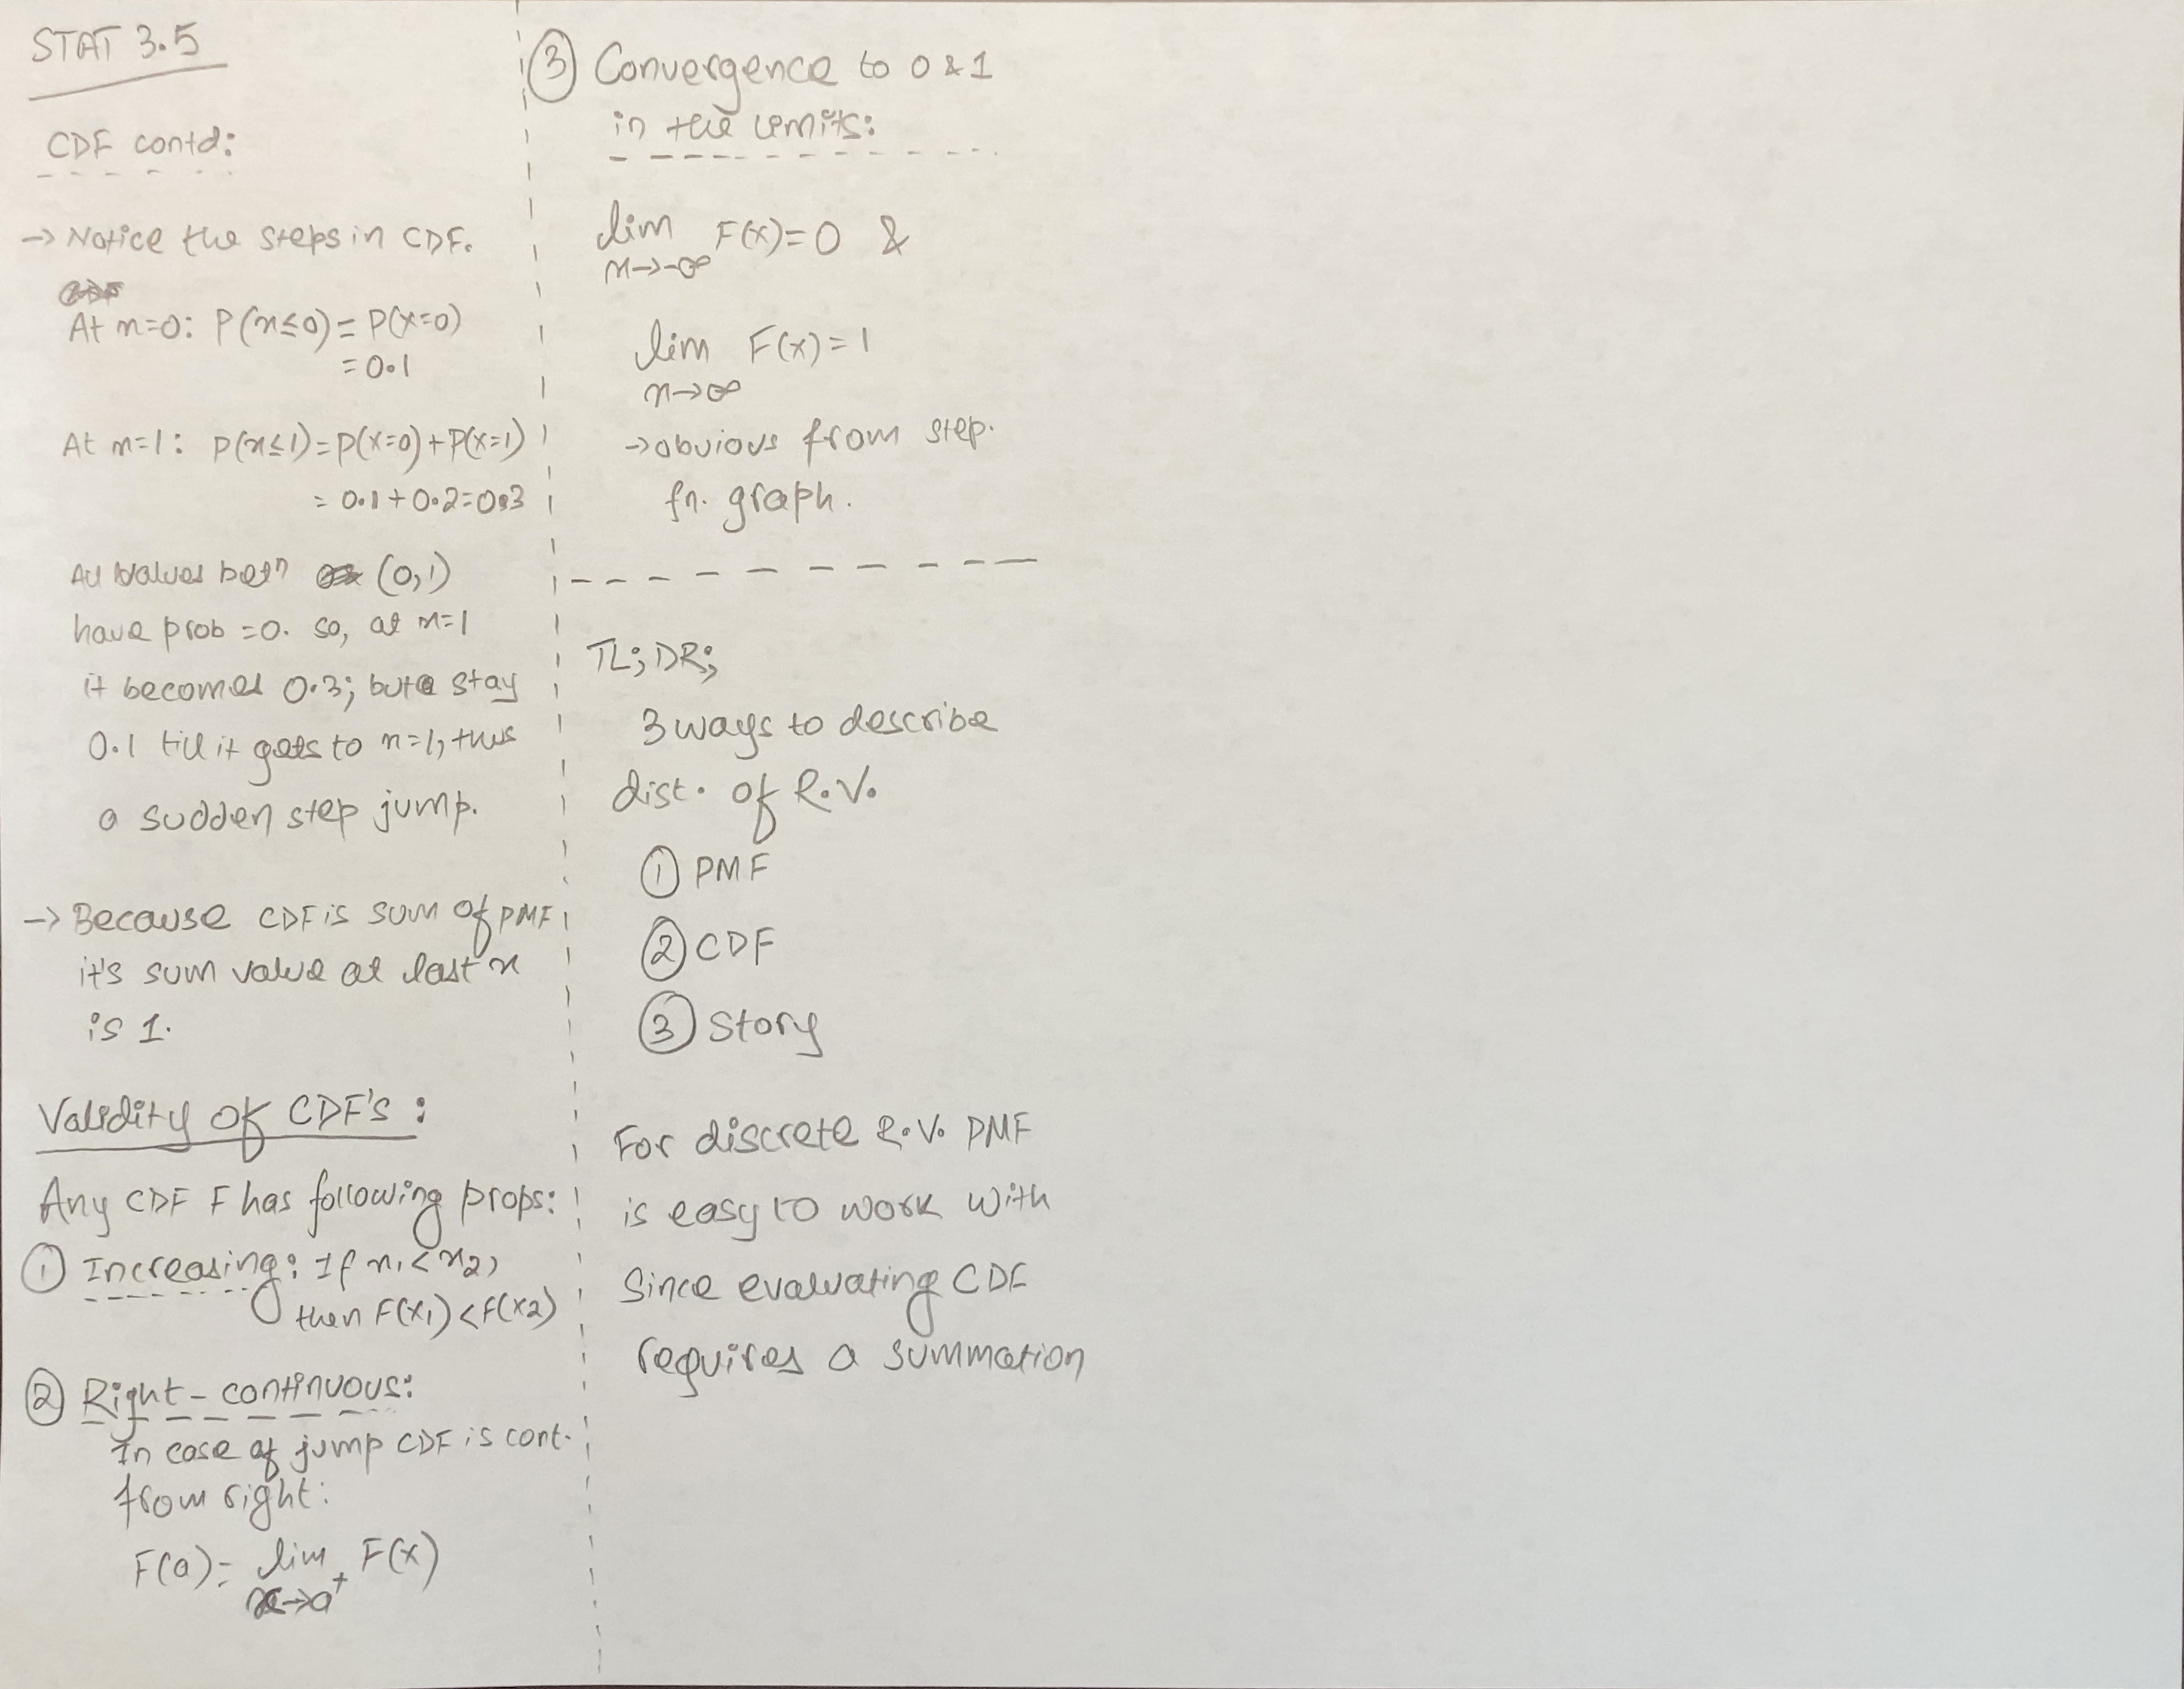 STAT 3.5
CDF contd:
→ Notice the steps in CDF.
At x=0: P(x≤0) = P(X=0)
= 0.1
At x=1: P(x≤1) = P(X=0) + P(X=1)
= 0.1 + 0.2 = 0.3
All values betn (0,1)
have prob = 0. so, at x=1
it becomes 0.3; but stay
0.1 till it gets to x=1, thus
a sudden step jump.
→ Because CDF is sum of PMF
it's sum value at last x
is 1.
Validity of CDF's :
Any CDF F has following props:
① Increasing: If x1 < x2,
then F(x1) < F(x2)
② Right-continuous:
In case of jump CDF is cont.
from right:
F(a) = lim F(x)
x→a+
③ Convergence to 0 & 1
in the limits:
lim F(x) = 0 &
x→-∞
lim F(x) = 1
x→∞
→ obvious from step.
fn. graph.
TL; DR;
3 ways to describe
dist. of R.V.
① PMF
② CDF
③ Story
For discrete R.V. PMF
is easy to work with
Since evaluating CDF
requires a summation